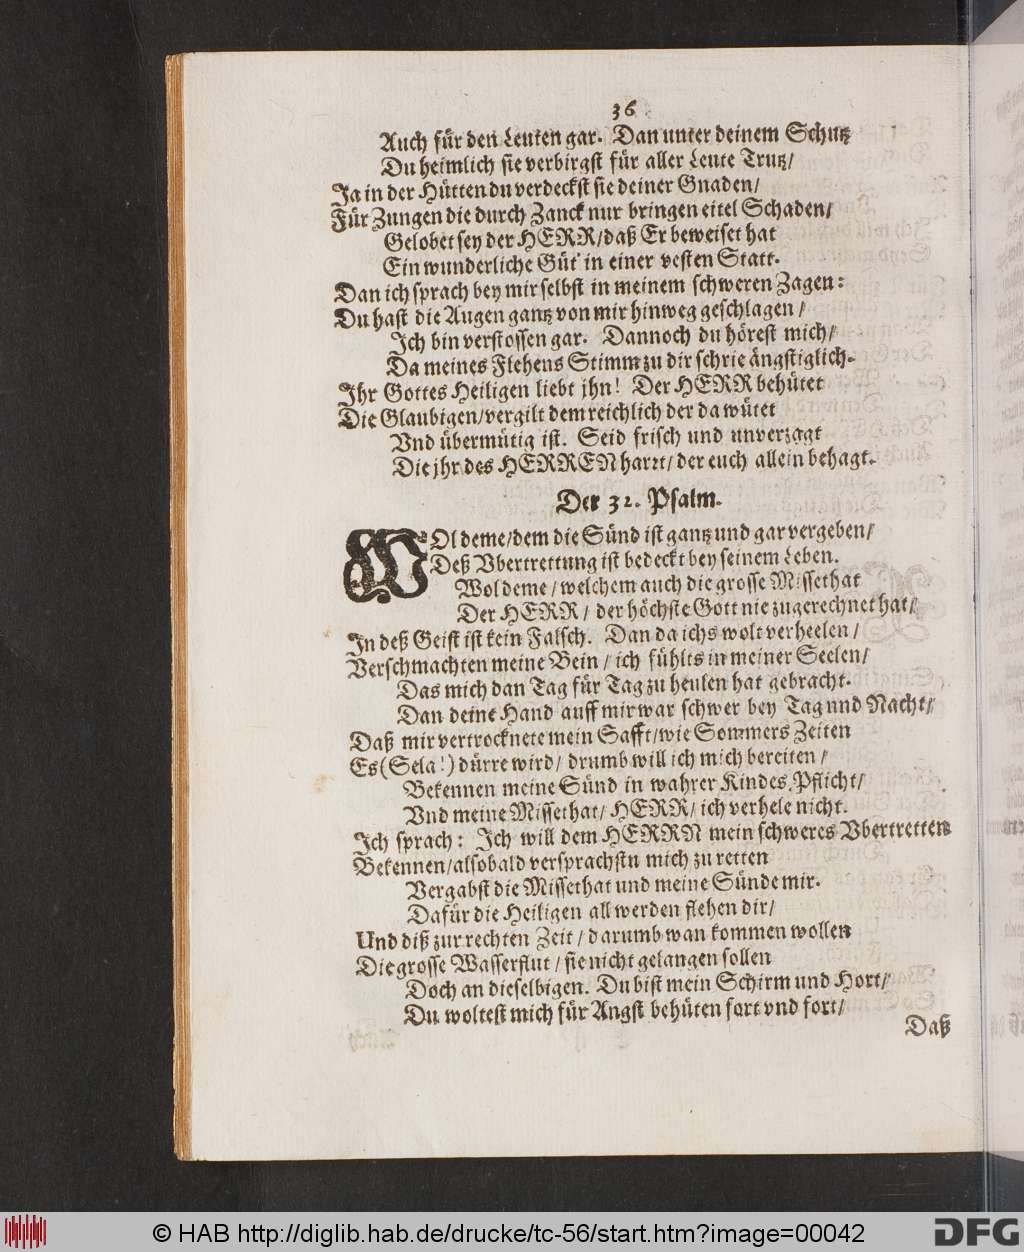 36
Auch für den Leuten gar. Dan unter deinem Schutz
Du heimlich sie verbirgst für aller Leute Trutz/
Ja in der Hütten du verdeckst sie deiner Gnaden/
Für Zungen die durch Zanck nur bringen eitel Schaden/
Gelobet sey der HERR/daß Er beweiset hat
Ein wunderliche Güt' in einer vesten Statt.
Dan ich sprach bey mir selbst in meinem schweren Zagen:
Du hast die Augen gantz von mir hinweg geschlagen/
Ich bin verstossen gar. Dannoch du hörest mich/
Da meines Flehens Stimm zu dir schrie ängstiglich.
Ihr Gottes Heiligen liebt jhn! Der HERR behütet
Die Glaubigen/vergilt dem reichlich der da wütet
Vnd übermütig ist. Seid frisch und unverzagt
Die jhr des HERREN harrt/der euch allein behagt.
Der 32. Psalm.
WOl deme/dem die Sünd ist gantz und gar vergeben/
Deß Vbertrettung ist bedeckt bey seinem Leben.
Wol deme/welchem auch die grosse Missethat
Der HERR/der höchste Gott nie zugerechnet hat/
In deß Geist ist kein Falsch. Dan da ichs wolt verheelen/
Verschmachten meine Bein/ich fühlts in meiner Seelen/
Das mich dan Tag für Tag zu heulen hat gebracht.
Dan deine Hand auff mir war schwer bey Tag und Nacht/
Daß mir vertrocknete mein Safft/wie Sommers Zeiten
Es (Sela!) dürre wird/drumb will ich mich bereiten/
Bekennen meine Sünd in wahrer Kindes Pflicht/
Vnd meine Missethat/HERR/ich verhele nicht.
Ich sprach: Ich will dem HERRN mein schweres Vbertretten
Bekennen/alsobald versprachstu mich zu retten
Vergabst die Missethat und meine Sünde mir.
Dafür die Heiligen all werden flehen dir/
Und diß zur rechten Zeit/darumb wan kommen wollen
Die grosse Wasserflut/sie nicht gelangen sollen
Doch an dieselbigen. Du bist mein Schirm und Hort/
Du woltest mich für Angst behüten fort vnd fort/
Daß
© HAB http://diglib.hab.de/drucke/tc-56/start.htm?image=00042
DFG